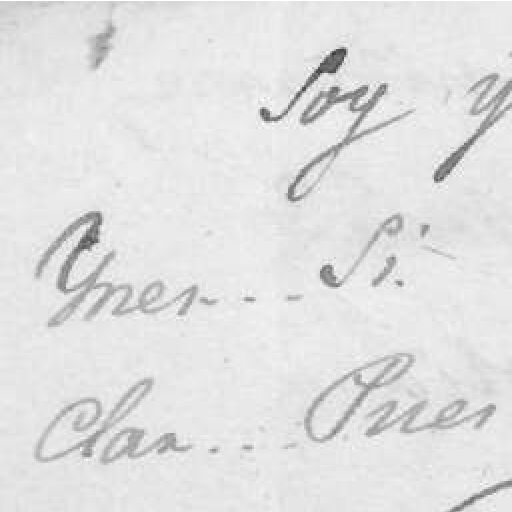 Soy y
Ynes... Si.
Clar.... Pues